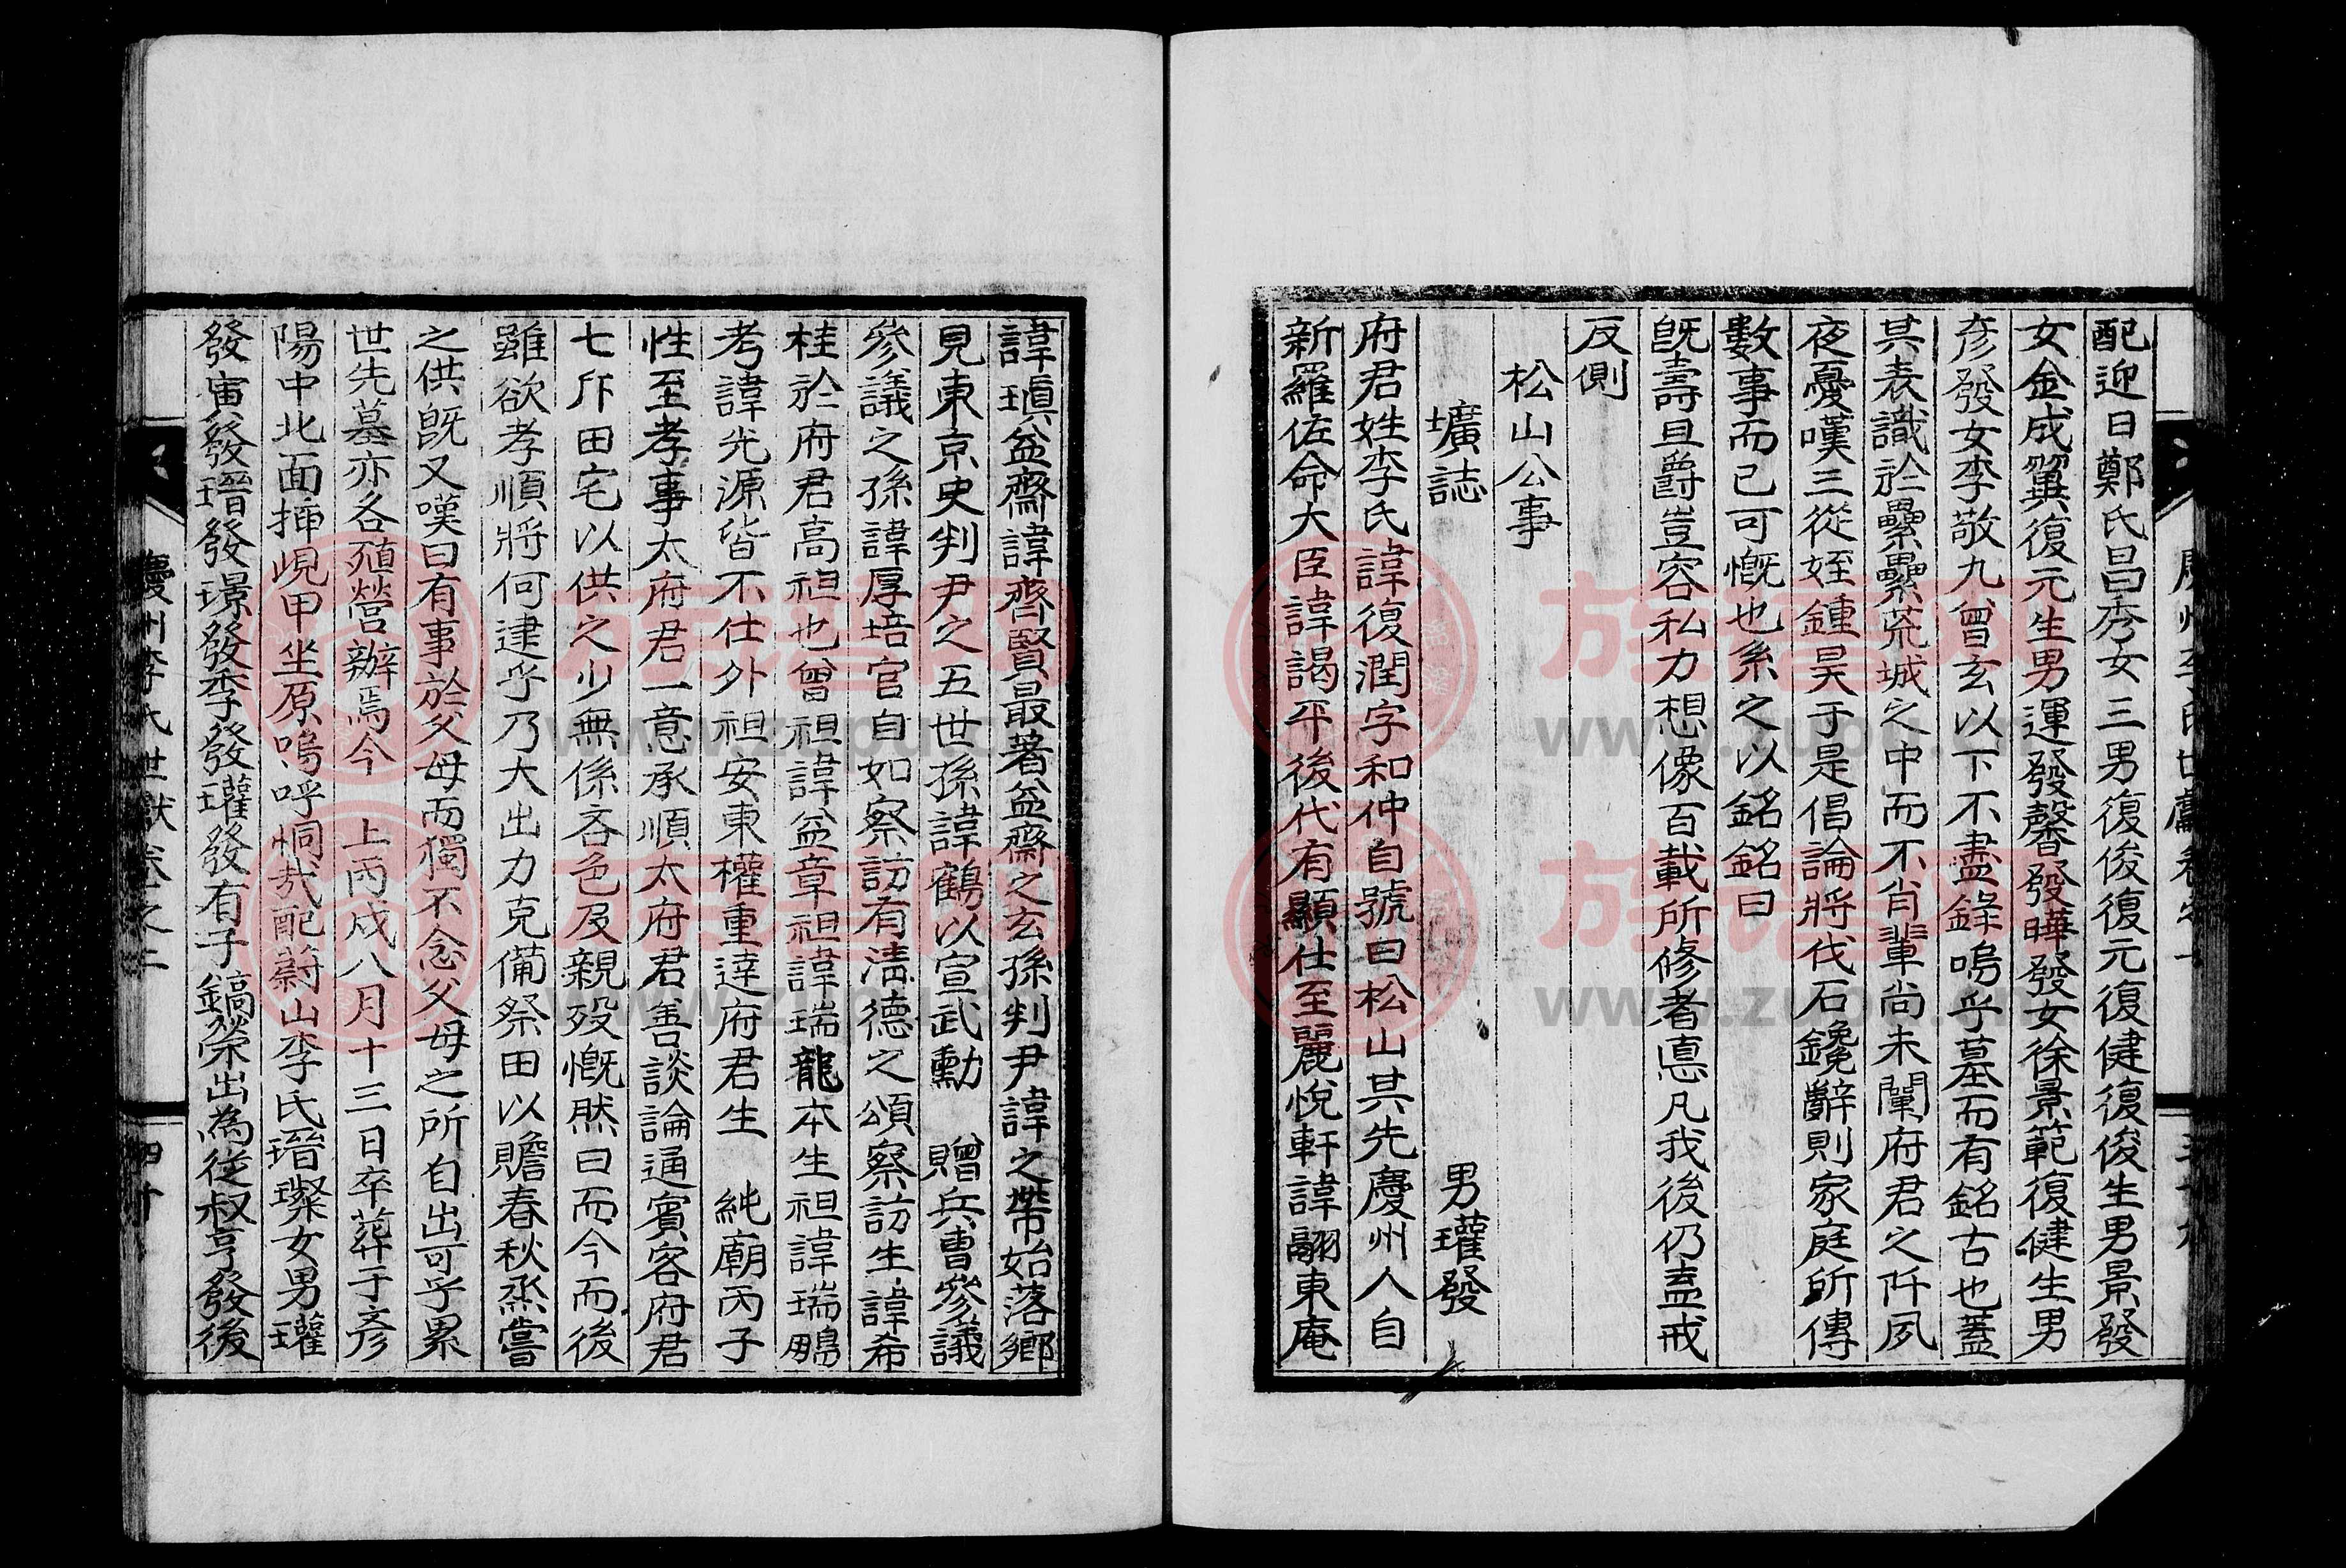 配迎日鄭氏昌秀女三男復後復元復健復俊生男景發
女金成翼復元生男運發馨發曄發女徐景範復健生男
彦發女李敬九曾玄以下不盡錄嗚乎墓而有銘古也蓋
其表識於纍纍荒城之中而不肖輩尚未闡府君之阡夙
夜憂嘆三從姪鍾昊于是倡論將伐石鑱辭則家庭所傳
數事而已可慨也系之以銘銘曰
旣壽且爵豈容私力想像百載所修者悳凡我後仍盍戒
反側
松山公事
壙誌 男瓘發
府君姓李氏諱復潤字和仲自號曰松山其先慶州人自
新羅佐命大臣諱謁平後代有顯仕至麗悅軒諱翮東庵
諱瑱益齋諱齊賢最著益齋之玄孫判尹諱之帶始落鄉
見東京史判尹之五世孫諱鶴以宣武勳 贈兵曹參議
參議之孫諱厚培官自如察訪有淸德之頌察訪生諱希
桂於府君高祖也曾祖諱益章祖諱瑞龍本生祖諱瑞鵬
考諱光源皆不仕外祖安東權重達府君生 純廟丙子
性至孝事太府君一意承順太府君善談論通賓客府君
七斥田宅以供之少無係吝色及親歿慨然曰而今而後
雖欲孝順將何逮乎乃大出力克備祭田以贍春秋烝嘗
之供旣又嘆曰有事於父母而獨不念父母之所自出可乎累
世先墓亦各殖營辦焉今 上丙戍八月十三日卒葬于彥
陽中北面揷峴甲坐原嗚呼恫哉配蔚山李氏瑨璨女男瓘
發宙發瑨發璟發李發瓘發有子鎬榮出為從叔亨發後
慶州李氏世獻卷之二 四十